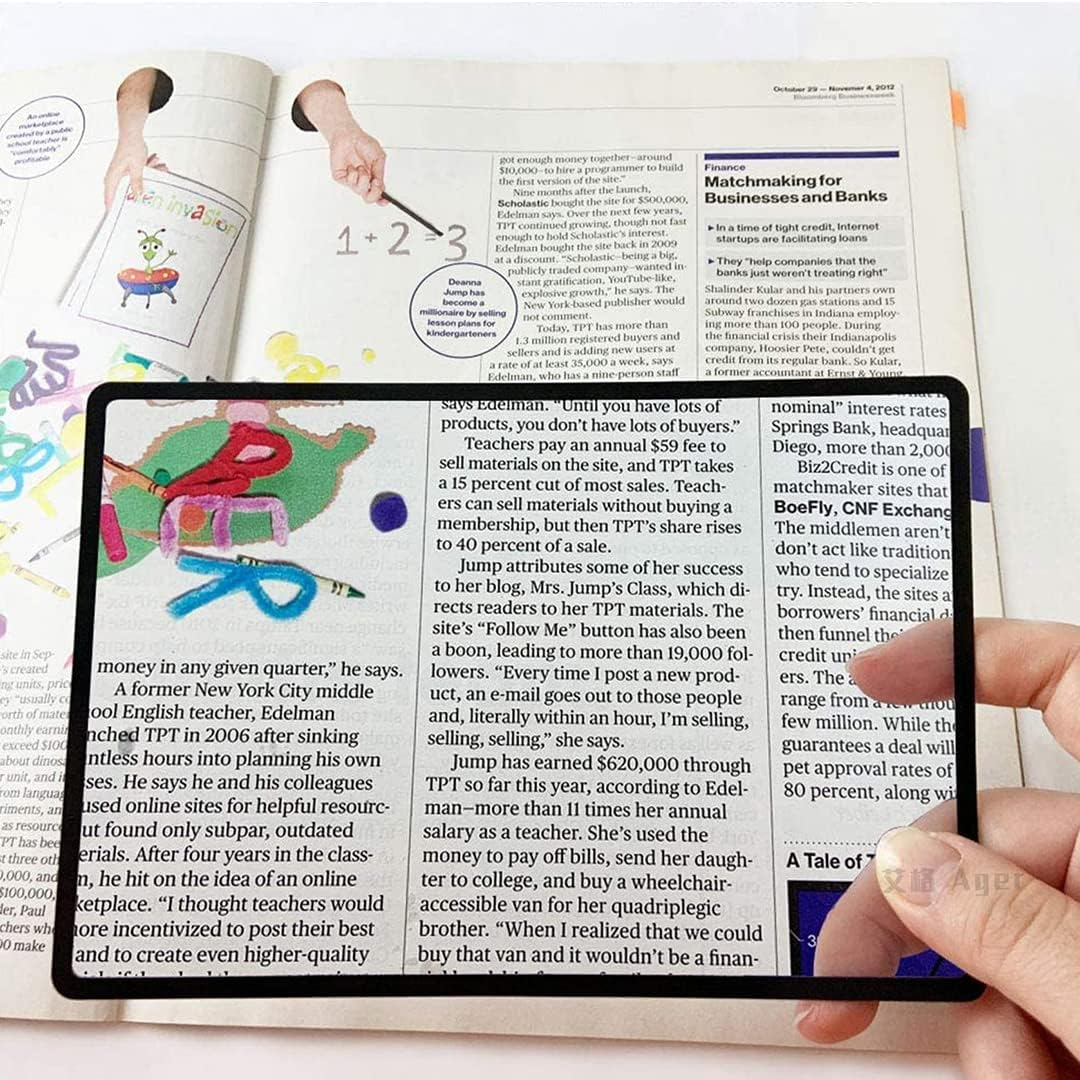 October 29 — Novemer 4, 2012
Bloomberg Businessweek
An online
marketplace
created by a public
school teacher is
"comfortably"
profitable
alien invasion
1 + 2 = 3
Deanna
Jump has
become a
millionaire by selling
lesson plans for
kindergarteners
got enough money together—around
$10,000—to hire a programmer to build
the first version of the site."
Nine months after the launch,
Scholastic bought the site for $500,000,
Edelman says. Over the next few years,
TPT continued growing, though not fast
enough to hold Scholastic's interest.
Edelman bought the site back in 2009
at a discount. "Scholastic—being a big,
publicly traded company—wanted in-
stant gratification, YouTube-like,
explosive growth," he says. The
New York-based publisher would
not comment.
Today, TPT has more than
1.3 million registered buyers and
sellers and is adding new users at
a rate of at least 35,000 a week, says
Edelman, who has a nine-person staff
Finance
Matchmaking for
Businesses and Banks
▸ In a time of tight credit, Internet
startups are facilitating loans
▸ They "help companies that the
banks just weren't treating right"
Shalinder Kular and his partners own
around two dozen gas stations and 15
Subway franchises in Indiana employ-
ing more than 100 people. During
the financial crisis their Indianapolis
company, Hoosier Pete, couldn't get
credit from its regular bank. So Kular,
a former accountant at Ernst & Young,
site in Sep-
's created
ng units, price
ey "usually co
orth of mater
onthly earnin
exceed $100
about dinosa
r unit, and i
rom languag
riments, an
as resource
TPT has bee
t three oth
0,000, and
$100,000,
ler, Paul
chers wh
00 make
money in any given quarter," he says.
A former New York City middle
ool English teacher, Edelman
nched TPT in 2006 after sinking
ntless hours into planning his own
ses. He says he and his colleagues
used online sites for helpful resourc-
ut found only subpar, outdated
erials. After four years in the class-
m, he hit on the idea of an online
ketplace. "I thought teachers would
ore incentivized to post their best
and to create even higher-quality
says Edelman. "Until you have lots of
products, you don't have lots of buyers."
Teachers pay an annual $59 fee to
sell materials on the site, and TPT takes
a 15 percent cut of most sales. Teach-
ers can sell materials without buying a
membership, but then TPT's share rises
to 40 percent of a sale.
Jump attributes some of her success
to her blog, Mrs. Jump's Class, which di-
rects readers to her TPT materials. The
site's "Follow Me" button has also been
a boon, leading to more than 19,000 fol-
lowers. "Every time I post a new prod-
uct, an e-mail goes out to those people
and, literally within an hour, I'm selling,
selling, selling," she says.
Jump has earned $620,000 through
TPT so far this year, according to Edel-
man—more than 11 times her annual
salary as a teacher. She's used the
money to pay off bills, send her daugh-
ter to college, and buy a wheelchair-
accessible van for her quadriplegic
brother. "When I realized that we could
buy that van and it wouldn't be a finan-
nominal" interest rates
Springs Bank, headquar
Diego, more than 2,000
Biz2Credit is one of
matchmaker sites that
BoeFly, CNF Exchang
The middlemen aren't
don't act like tradition
who tend to specialize
try. Instead, the sites a
borrowers' financial d
then funnel the
credit uni
ers. The a
range from a few thou
few million. While the
guarantees a deal will
pet approval rates of
80 percent, along wi
A Tale of T
3
艾格 Ager